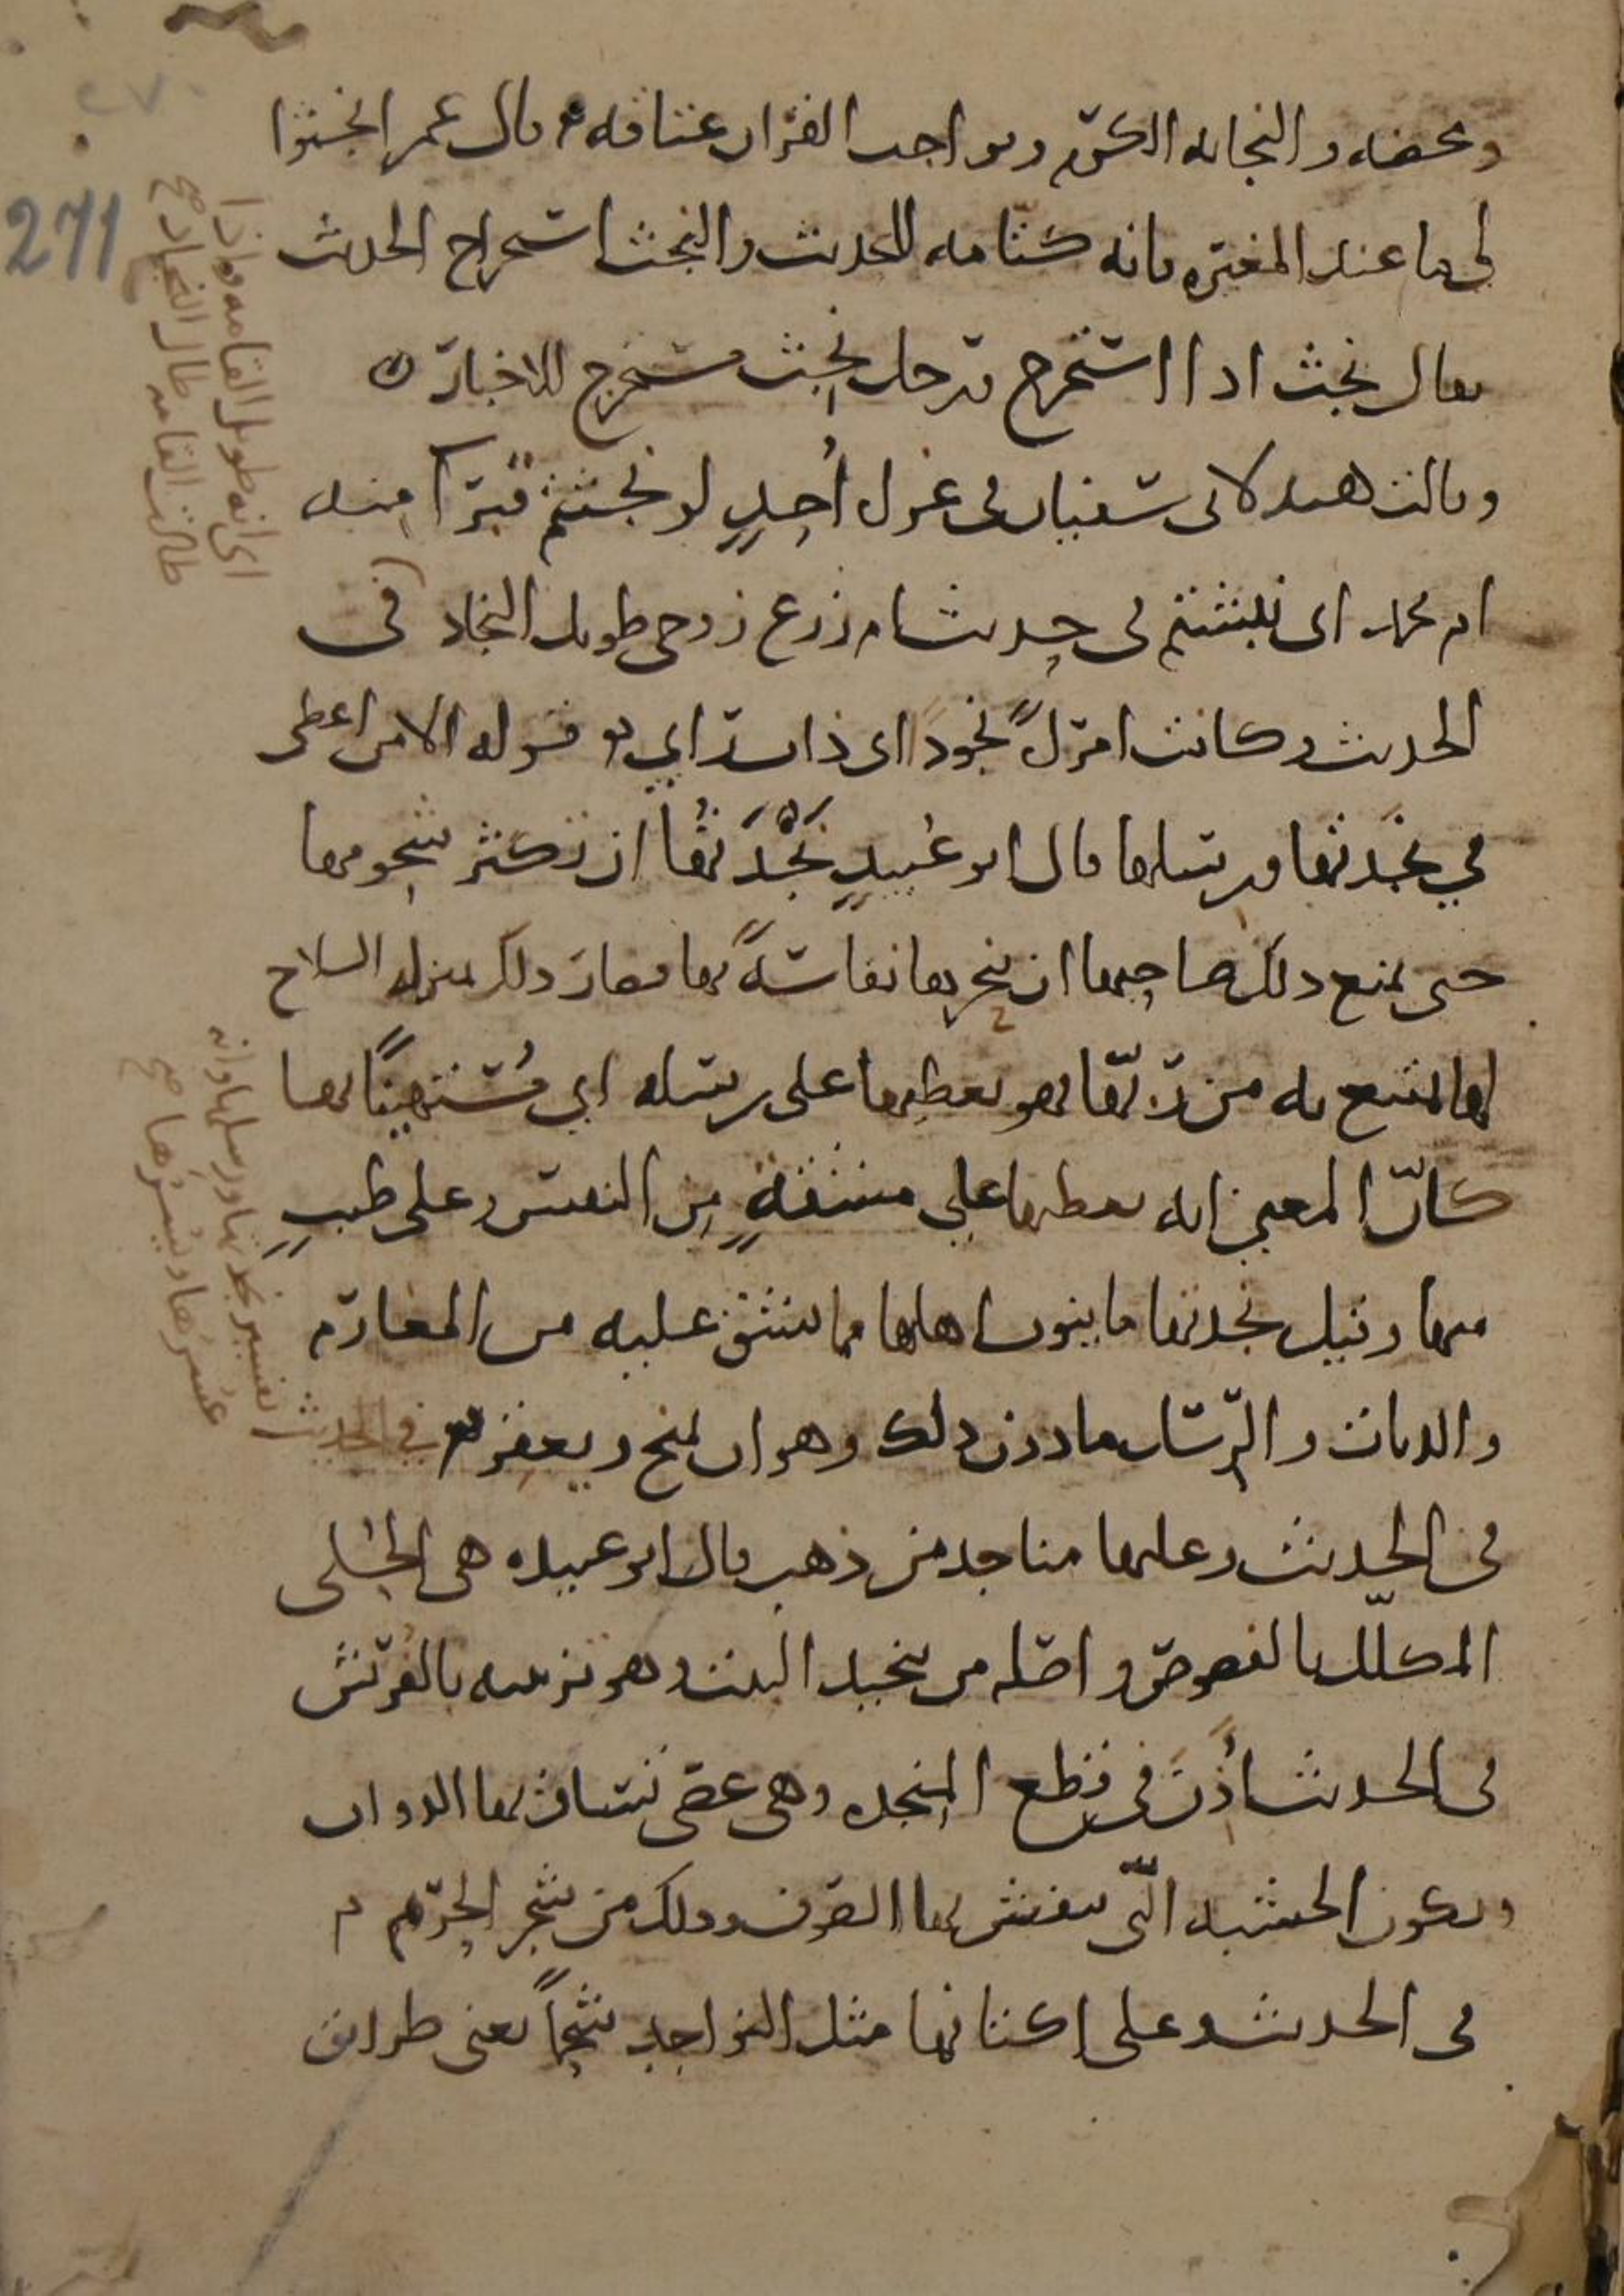 ومحضه والنجابه الكرم ونواجب القران عتاقه قال عمر انجثوا
لي ما عند المغيره فانه كتامه للحديث والنجث استخراج الحديث
يقال نجث اذا استخرج ورجل نجث مستخرج للاخبار
وقالت هند لابي سفيان في غزل أحد لو نجثتم قبر آمنه
ام محمد اي نبشتم في حديث ام زرع زوجي طويل النجاد في
الحديث وكانت امرأة نجودا اي ذات راي قوله الا من اعطى
في نجدتها ورسلها قال ابو عبيد نجدتها ان تكثر شحومها
حتى يمنع ذلك صاحبها ان ينحرها نفاسة بها فصار ذلك بمنزله السلاح
لها تمتنع به من ربها فهو يعطيها على رسله اي مستهينا بها
كان المعنى انه يعطيها على مشقة من النفس وعلى طيب
منها وقيل نجدتها ما ينوب اهلها مما يشق عليه من المغارم
والديات والرسل ما دون ذلك وهو ان يمنح ويعقر
في الحديث وعليها مناجد من ذهب قال ابو عبيده هي الحلى
المكلل بالفصوص واصله من تنجيد البيت وهو تزيينه بالفرش
في الحديث أذن في قطع المنجده وهي عصى تساق بها الدواب
وتكون الخشبه التي ينفش بها الصوف وذلك من شجر الحرم
في الحديث وعلى اكتافها مثل النواجد شحما يعني طرائق
اي انه طويل القامه واذا
طالت القامه طال النجاد صح
في الحديث تفسير نجدتها ورسلها وانه
عسرها ويسرها صح
271